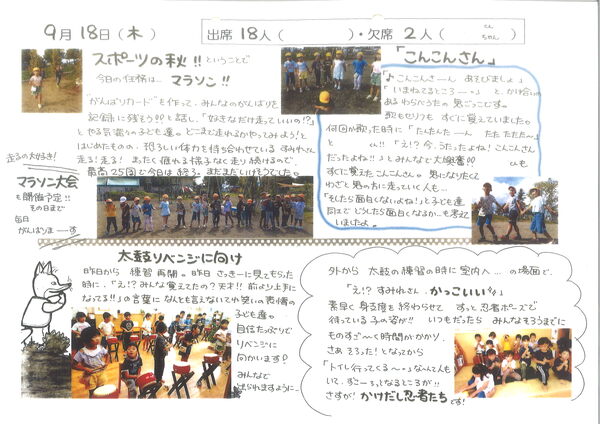 9月18日(木)
出席 18人( )・欠席 2人( )
スポーツの秋!! ということで
今日の任務は… マラソン!!
"がんばりカード"を作って、みんなのがんばりを
記録に残そう!!と話し、「好きなだけ走っていいの!?」
とやる気満々の子ども達。どこまで走れるかやってみよう!と
はじめたものの、恐ろしい体力を持ち合わせている すみれさん。
走る!走る! まったく疲れる様子なく走り続けるので、
最高25周で今日は終了。まだまだいけそうでした。
走るの大好き!
マラソン大会
も開催予定!!
その日まで
毎日
がんばりまーす
「こんこんさん」
「♪こんこんさーん あそびましょ」
「いまねてるところー。」と、かけ合いの
あるわらべうたの鬼ごっこです。
歌もセリフも すぐに覚えていました。
何回か歌った時に「たんたんーん たた たたた~」
と 「え!?今、うたったよね!こんこんさん
だったよね!!」とみんなで大興奮!!
すぐに覚えたこんこんさん。鬼になりたくて
わざと鬼の方に走っていく人も…
「そしたら面白くないよね!」と子ども達
同士でどうしたら面白くなるか…も考え
ていましたよ。
太鼓リベンジに向け
昨日から 練習再開。昨日 さっきーに見てもらった
時に、「え!?みんな覚えてたの?天才!!前より上手に
なってる!!」の言葉に なんとも言えないてれ笑いの表情の
子ども達。
自信たっぷりで
リベンジに
向かいます!
みんなで
出られますように…
外から 太鼓の練習の時に室内へ…の場面で、
「え!? すみれさん、かっこいい!!」
素早く身支度を終わらせて ずっと忍者ポーズで
待っている子の姿が!! いつもだったら みんなそろうまでに
ものすご~く時間がかかり、
さぁ そろった!となってから
「トイレ行ってくる~。」なんてんも
いて、すご…っとなるところが!!
さすが! かけだし忍者たち です!